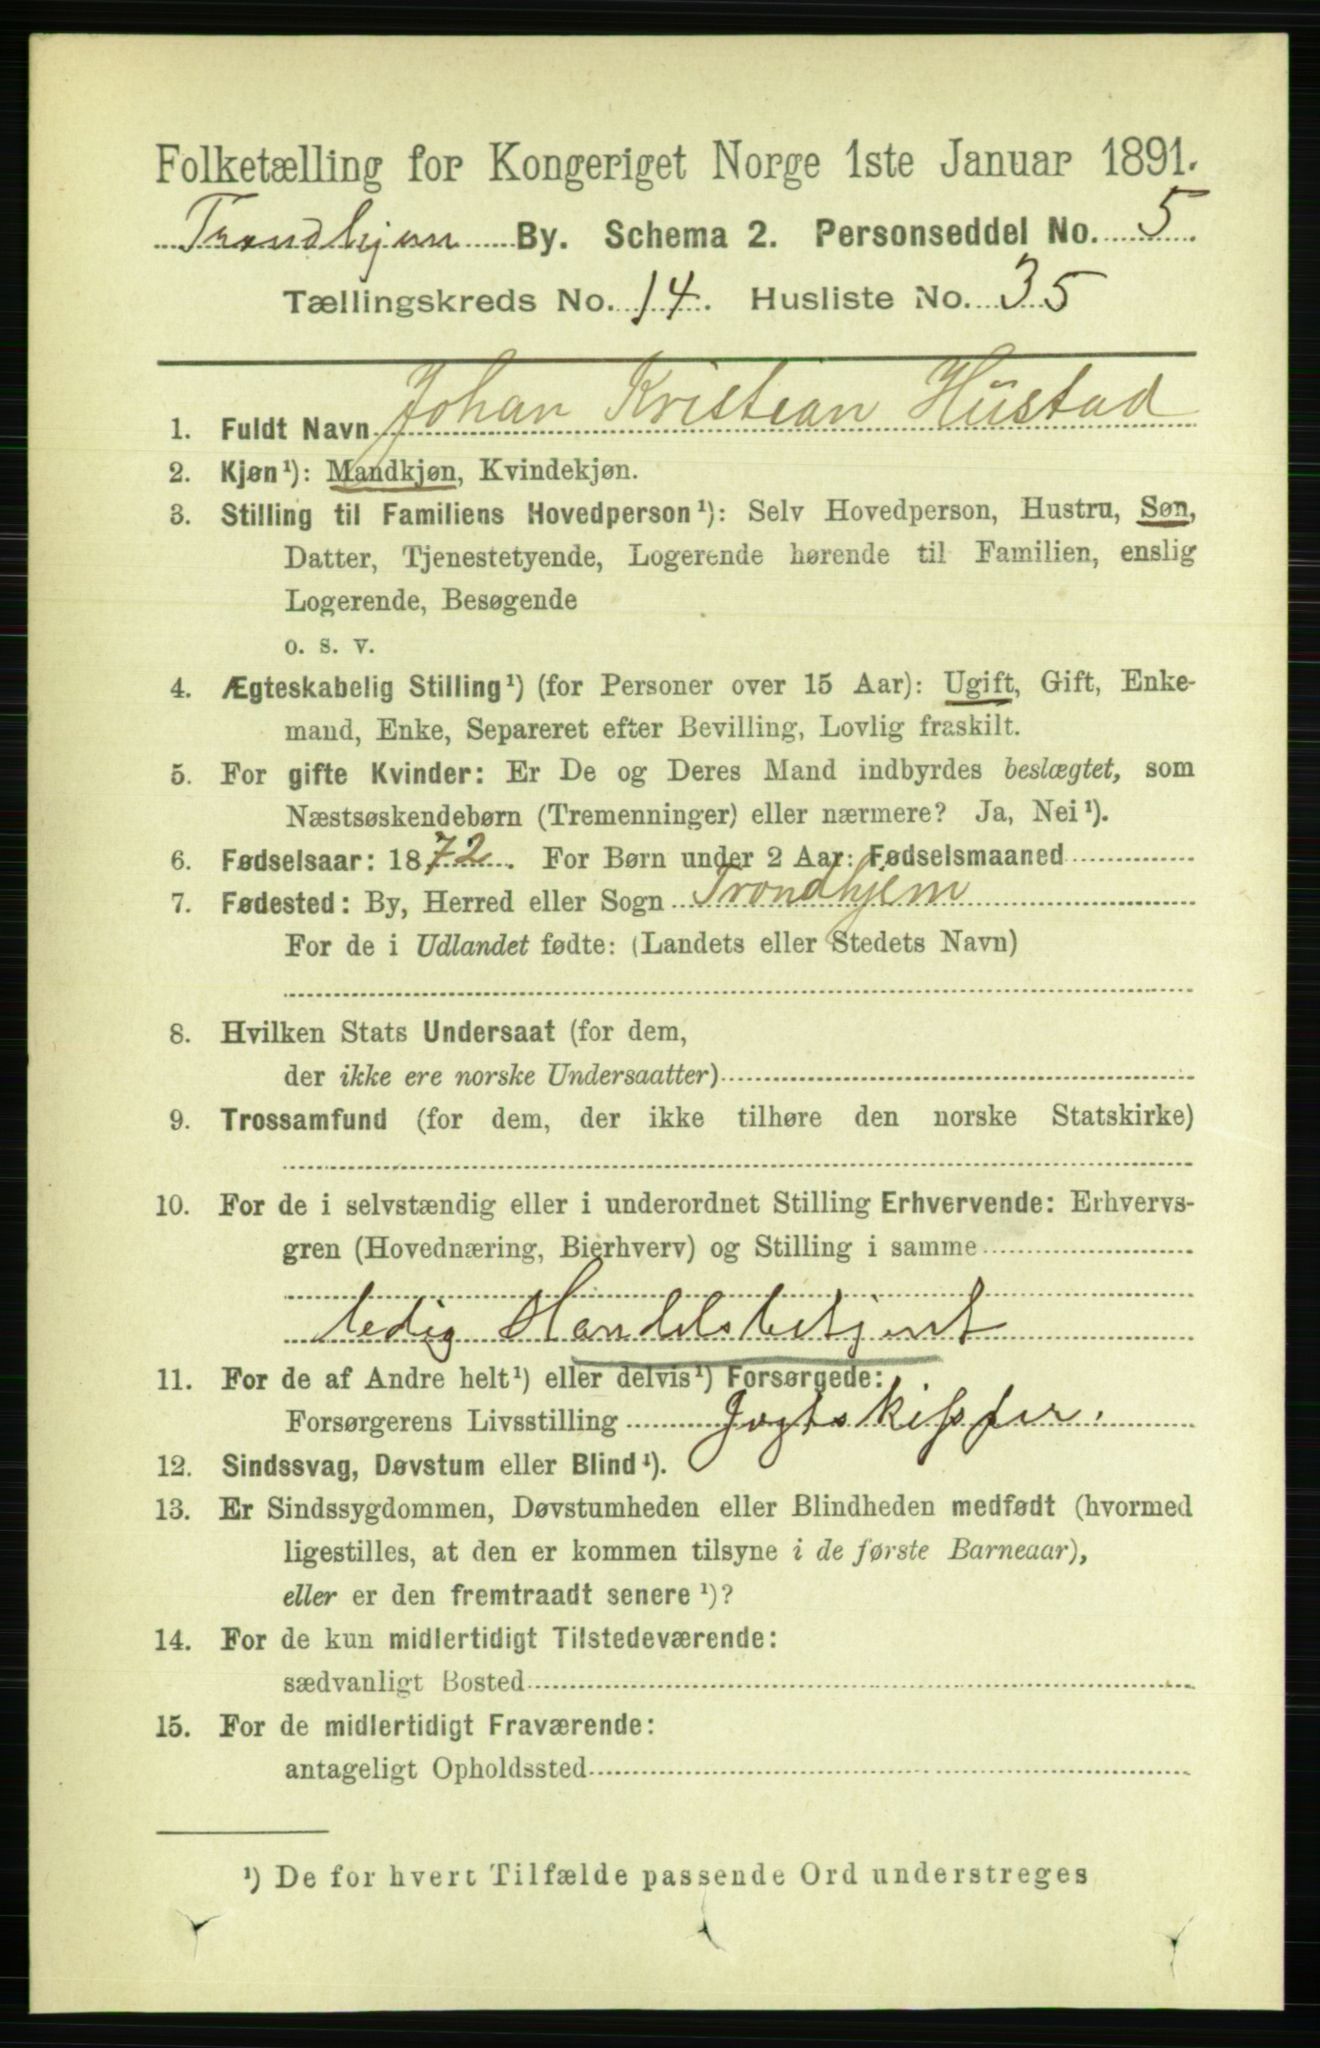 Folketælling for Kongeriget Norge 1ste Januar 1891.
Trondhjem By. Schema 2. Personseddel No. 5
Tællingskreds No. 14. Husliste No. 35
1. Fuldt Navn Johan Kristian Hustad
2. Kjøn¹): Mandkjøn, Kvindekjøn.
3. Stilling til Familiens Hovedperson¹): Selv Hovedperson, Hustru, Søn,
Datter, Tjenestetyende, Logerende hørende til Familien, enslig
Logerende, Besøgende
o. s. v.
4. Ægteskabelig Stilling¹) (for Personer over 15 Aar): Ugift, Gift, Enke-
mand, Enke, Separeret efter Bevilling, Lovlig fraskilt.
5. For gifte Kvinder: Er De og Deres Mand indbyrdes beslægtet, som
Næstsøskendebørn (Tremenninger) eller nærmere? Ja, Nei¹).
6. Fødselsaar: 1872. For Børn under 2 Aar: Fødselsmaaned
7. Fødested: By, Herred eller Sogn Trondhjem
For de i Udlandet fødte: (Landets eller Stedets Navn)
8. Hvilken Stats Undersaat (for dem,
der ikke ere norske Undersaatter)
9. Trossamfund (for dem, der ikke tilhøre den norske Statskirke)
10. For de i selvstændig eller i underordnet Stilling Erhvervende: Erhvervs-
gren (Hovednæring, Bierhverv) og Stilling i samme
ledig Handelsbetjent
11. For de af Andre helt¹) eller delvis¹) Forsørgede:
Forsørgerens Livsstilling Jagtskipper.
12. Sindssvag, Døvstum eller Blind¹).
13. Er Sindssygdommen, Døvstumheden eller Blindheden medfødt (hvormed
ligestilles, at den er kommen tilsyne i de første Barneaar),
eller er den fremtraadt senere¹)?
14. For de kun midlertidigt Tilstedeværende:
sædvanligt Bosted
15. For de midlertidigt Fraværende:
antageligt Opholdssted
¹) De for hvert Tilfælde passende Ord understreges